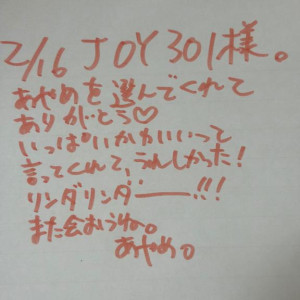 2/16 JOY301様。
あやめを選んでくれて
ありがとう♡
いっぱいかわいいって
言ってくれて、うれしかった!
リンダリンダー!!!
また会おうね。
あやめ。